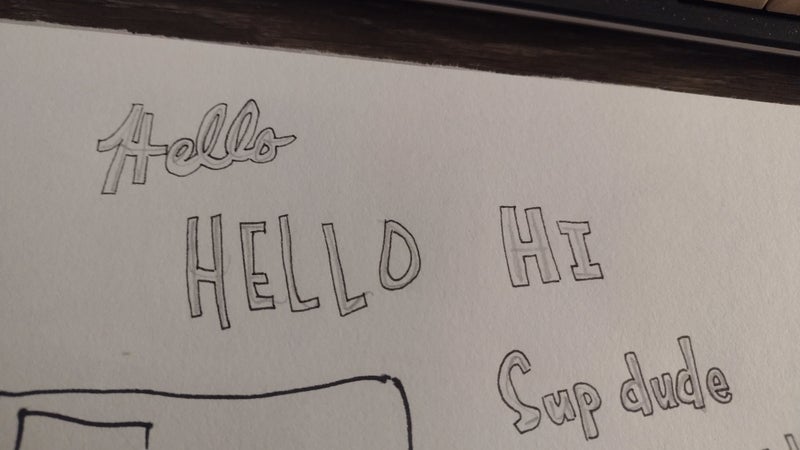 Hello
HELLO HI
Sup dude